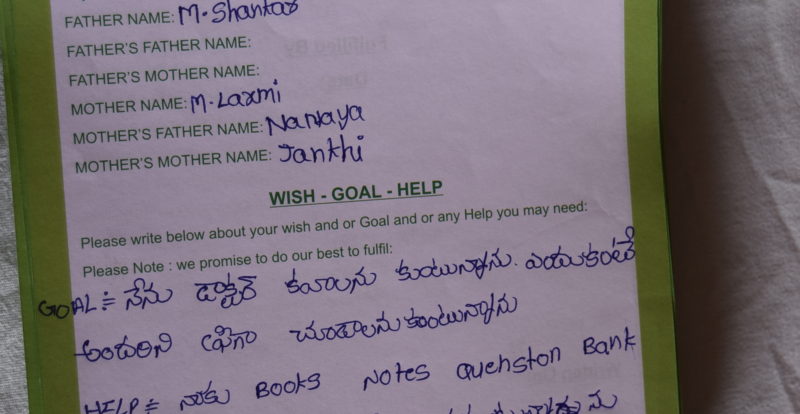 FATHER NAME: M. Shankar
FATHER'S FATHER NAME:
FATHER'S MOTHER NAME:
MOTHER NAME: M. Laxmi
MOTHER'S FATHER NAME: Narvaya
MOTHER'S MOTHER NAME: Janthi
WISH - GOAL - HELP
Please write below about your wish and or Goal and or any Help you may need:
Please Note : we promise to do our best to fulfil:
GOAL:= నేను డాక్టర్ కావాలను కుంటున్నాను. ఎందుకంటే
అందరిని ఫ్రీగా చూడాలనుకుంటున్నాను
HELP:= నాకు BOOKS NOTES Quehston Bank